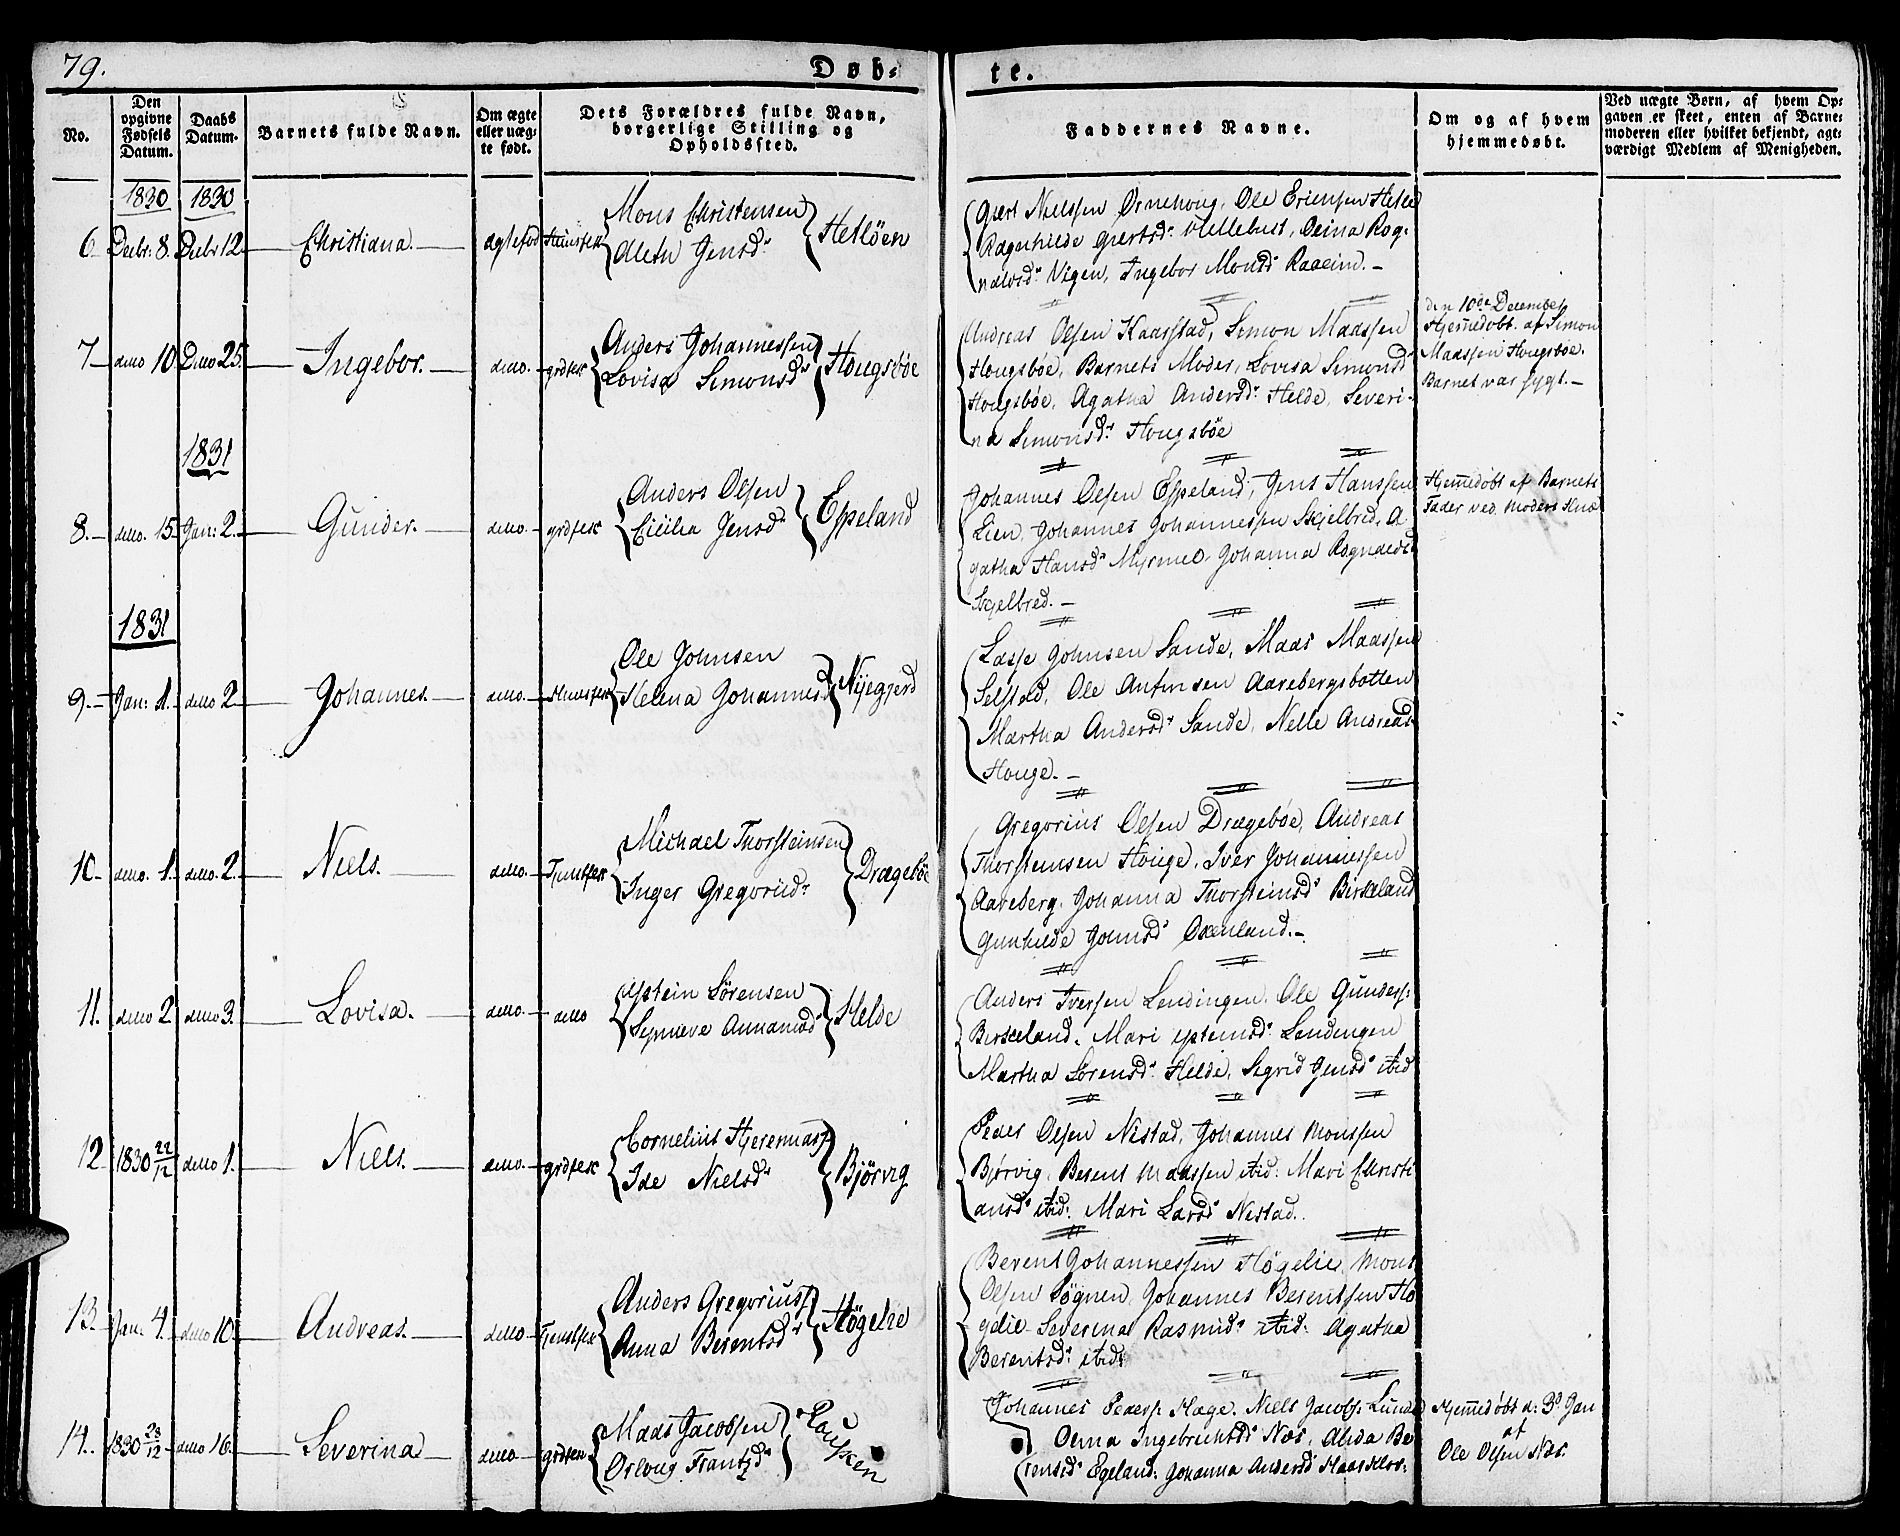 79.
Døb-
te.
No.
Den opgivne Fødsels Datum.
Daabs Datum.
Barnets fulde Navn.
Om ægte eller uæg-
te født.
Dets Forældres fulde Navn, borgerlige Stilling og Opholdssted.
Faddernes Navne.
Om og af hvem hjemmedøbt.
Ved uægte Børn, af hvem Op-
gaven er skeet, enten af Barne-
moderen eller hvilket bekjendt, agt-
værdigt Medlem af Menigheden.
1830 1830
6 Decbr: 8. Decbr 12. Christiana.
Mons Christensen
Aleth Jensd:
Gjert Nielssen Ørnehoug, Ole
Ragnhilde Gjertsd:
Vigen, Ingebor Monsd:
7 detto 10 Detto 25. Ingebor. detto.
Anders Johannessen
Lovisa Simonsd:
Hougsbøe
Andreas Olsen Kaarstad, Simon Maassen
Hougsbøe, Barnets Moder, Lovisa Simonsd:
Hougsbøe, Agatha Andersd: Helde, Severi-
na Simonsd: Hougsbøe
den 10de December
Hjemedøbt. af Simon
Maassen Hougsbøe.
Barnet var sygt.
1831
8. detto. 15 Jan: 2. Gunder. detto.
Anders Olsen
Cicilia Jensd:
Espeland
Johannes Olsen Espeland, Jens Hanssen
Lien, Johannes Johannessen Skjelbred, A-
gatha Hansd: Myrmel, Johanna Rognaldsd
Skjelbred.
Hjemedøbt af Barnets
Fader ved Moders Knæ
1831
9. Jan: 1. detto 2 Johannes. detto.
Ole Johnsen
Helena Johannesd
Nyegjerd
Lasse Johnsen Sande, Maas Maassen
Selstad, Ole Antonsen Aarebergsbotten
Martha Andersd: Sande, Nelle Andreasd
Houge.
10 detto. 1. detto. 2. Niels. detto.
Michael Thorsteinsen
Inger Gregoriid:
Drægebøe
Gregorius Olsen Drægebøe, Andreas
Thorsteinsen Houge, Iver Johannessen
Aareberg, Johanna Thorsteinsd: Birkeland
Gunhilde Johnsd: Oxenland.
11. detto 2 detto 3. Lovisa. detto. detto
Ystein Sörensen
Synneve Annanosd:
Helde
Anders Iversen Lendingen. Ole Gunders:
Birkeland. Mari Ysteinsd: Lendingen
Martha Sörensd: Helde, Sigrid Jensd: ibid
12 1830 22/12 detto 1. Niels. detto.
Cornelius Hjeremias:
Ide Nielsd:
Bjørvig
Peder Olsen Nistad, Johannes Monssen
Bjørvig, Berent Maassen ibid: Mari Christi-
ansd: ibid: Mari Larsd: Nistad.
13. Jan: 4. detto 10. Andreas. detto
Anders Gregoriuss:
Anna Berentsd:
Høgelie
Berent Johannessen Høgelie, Mons
Olsen Søgnen, Johannes Berentsen Hø-
gelie Severina Rasmusd: ibid: Agatha
Berentsd: ibid:
14. 1830 23/12 detto 16. Severina detto
Maas Jacobsen
Orloug Frantzd:
Johannes Peders: Hage. Niels Jacobs: Lunde
Oerna Ingebrichtsd: Næs, Alida Be-
rentsd: Egeland: Johanna Andersd
Hjemedøbt d: 3d Jan
af
Ole Olsen Næs.